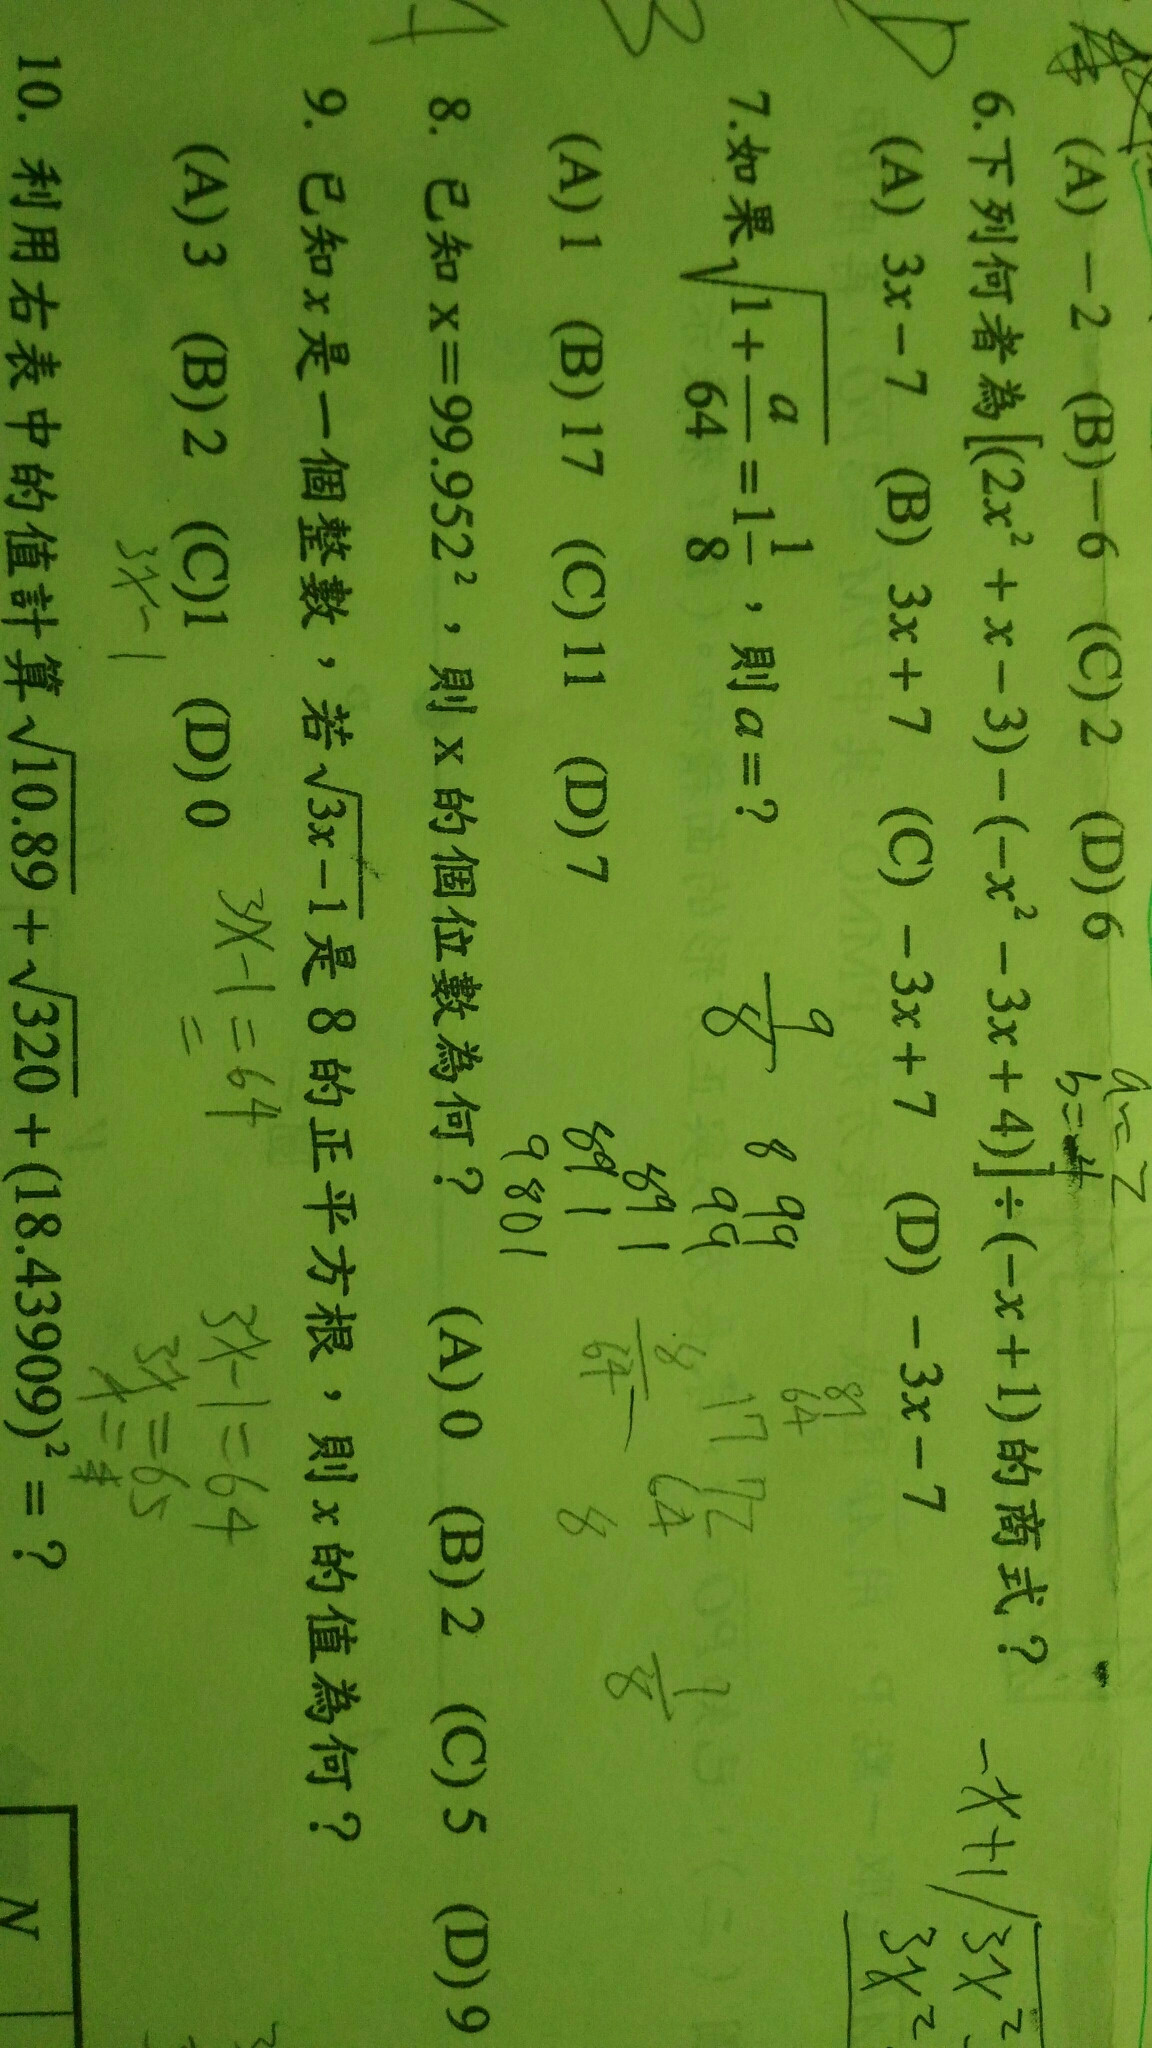 (A) －2 (B)－6 (C) 2 (D) 6
a=2
b=4
6.下列何者為[(2x²＋x－3)－(－x²－3x＋4)]÷(－x＋1)的商式？
(A) 3x－7 (B) 3x＋7 (C) －3x＋7 (D) －3x－7
-x+1 3x²
3x²
7.如果√(1＋a/64)＝1 1/8，則a＝？
9/8
8 99
99
891
891
9801
81
64
17
72
64
8
64
8
1/8
(A) 1 (B) 17 (C) 11 (D) 7
8. 已知 x＝99.952²，則 x 的個位數為何？ (A) 0 (B) 2 (C) 5 (D) 9
9. 已知x是一個整數，若√(3x－1)是 8 的正平方根，則x的值為何？
(A) 3 (B) 2 (C)1 (D) 0
3x-1=64
=
3x-1=64
3x=65
x=
3x-1
10. 利用右表中的值計算√10.89＋√320＋(18.43909)²＝？
N